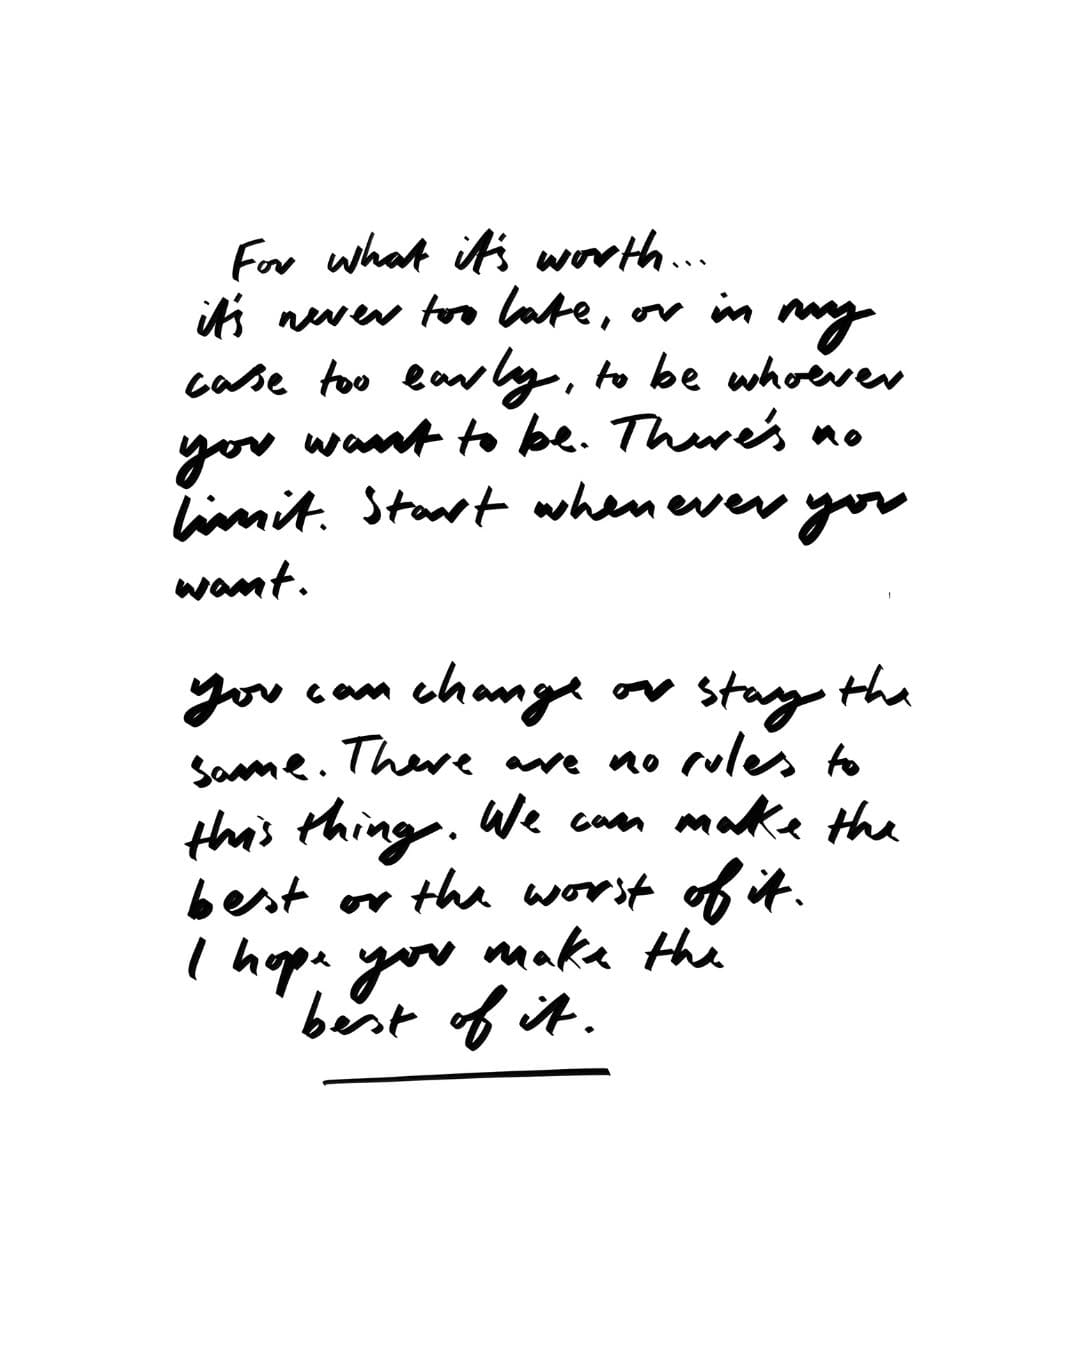 For what it's worth...
it's never too late, or in my
case too early, to be whoever
you want to be. There's no
limit. Start whenever you
want.
you can change or stay the
same. There are no rules to
this thing. We can make the
best or the worst of it.
I hope you make the
best of it.